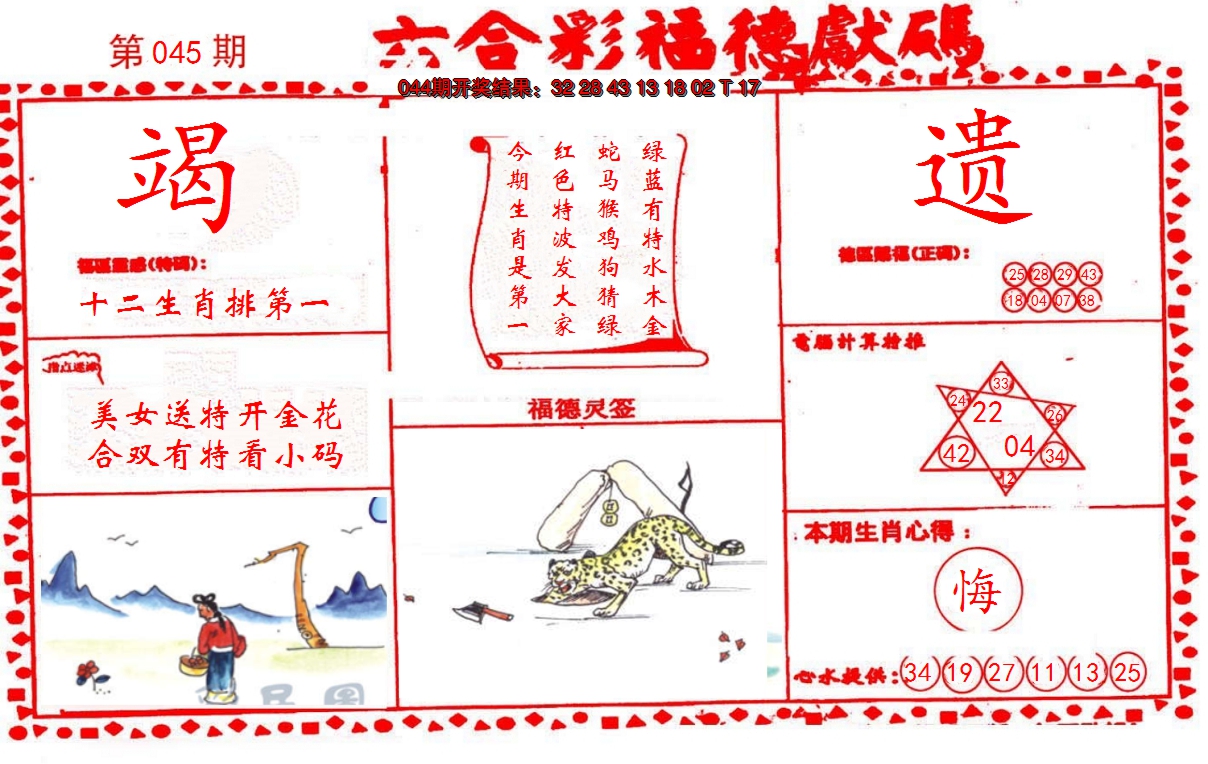 第 045 期
六合彩福德獻碼
044期开奖结果：32 28 43 13 18 02 T 17
竭
十二生肖排第一
美女送特开金花
合双有特看小码
绿蓝有特水木金
蛇马猴鸡狗猜绿
红色特波发大家
今期生肖是第一
福德灵签
遗
(正碼)：
25 28 29 43
18 04 07 38
電腦計算推
33
24 22 26
42 04 34
12
本期生肖心得：
悔
心水提供：34 19 27 11 13 25